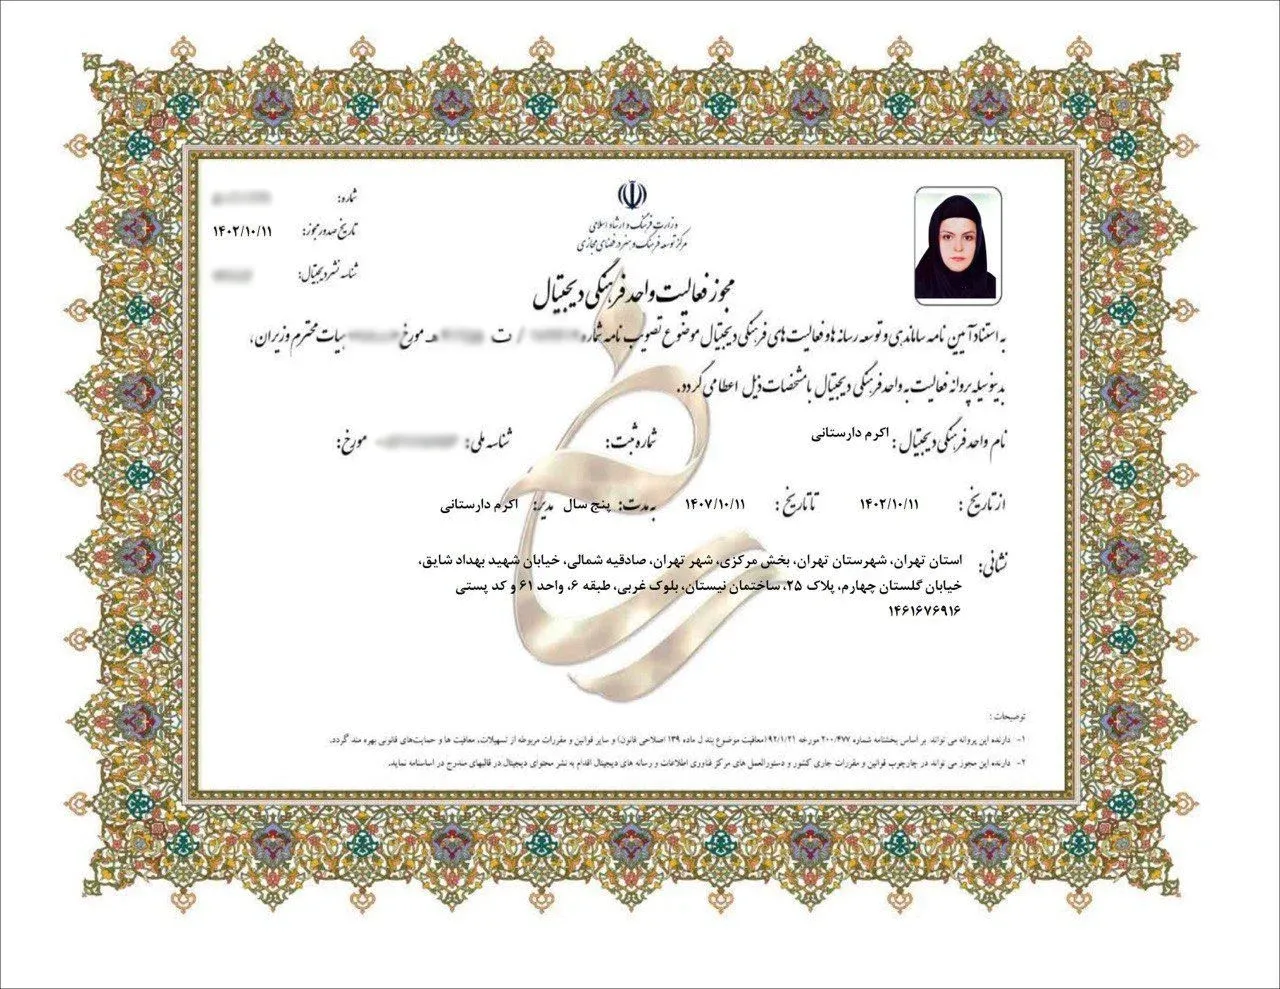 وزارت فرهنگ و ارشاد اسلامی
مرکز توسعه فرهنگ و هنر در فضای مجازی
شماره:
تاریخ صدور مجوز: ۱۴۰۲/۱۰/۱۱
شناسه نشر دیجیتال:
مجوز فعالیت واحد فرهنگی دیجیتال
به استناد آیین نامه ساماندهی و توسعه رسانه ها و فعالیت های فرهنگی دیجیتال موضوع تصویب نامه شماره / ت هـ مورخ هیات محترم وزیران،
بدینوسیله پروانه فعالیت به واحد فرهنگی دیجیتال با مشخصات ذیل اعطا می گردد.
نام واحد فرهنگی دیجیتال : اکرم دارستانی شماره ثبت: شناسه ملی: مورخ:
از تاریخ : ۱۴۰۲/۱۰/۱۱ تا تاریخ : ۱۴۰۷/۱۰/۱۱ به مدت: پنج سال مدیر: اکرم دارستانی
نشانی: استان تهران، شهرستان تهران، بخش مرکزی، شهر تهران، صادقیه شمالی، خیابان شهید بهداد شایق،
خیابان گلستان چهارم، پلاک ۲۵، ساختمان نیستان، بلوک غربی، طبقه ۶، واحد ۶۱ و کد پستی
۱۴۶۱۶۷۶۹۱۶
توضیحات :
۱- دارنده این پروانه می تواند بر اساس بخشنامه شماره ۲۰۰/۴۷۷ مورخه ۹۲/۱/۲۱ (معافیت موضوع بند ل ماده ۱۳۹ اصلاحی قانون) و سایر قوانین و مقررات مربوطه از تسهیلات، معافیت ها و حمایت‌های قانونی بهره مند گردد.
۲- دارنده این مجوز می تواند در چارچوب قوانین و مقررات جاری کشور و دستورالعمل های مرکز فناوری اطلاعات و رسانه های دیجیتال اقدام به نشر محتوای دیجیتال در قالبهای مندرج در اساسنامه نماید.